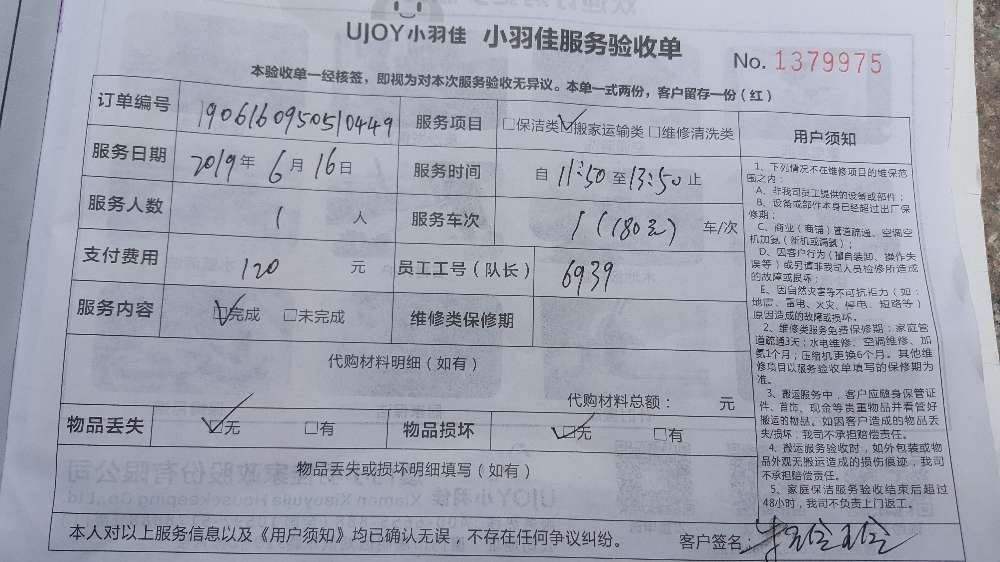 UJOY小羽佳 小羽佳服务验收单
No. 1379975
本验收单一经核签，即视为对本次服务验收无异议。本单一式两份，客户留存一份（红）
订单编号 190616095051044​9 服务项目 □保洁类 ☑搬家运输类 □维修清洗类
服务日期 2019年6月16日 服务时间 自 11:50 至 13:50 止
服务人数 1 人 服务车次 1（180元） 车/次
支付费用 120 元 员工工号（队长） 6939
服务内容 ☑完成 □未完成 维修类保修期
代购材料明细（如有）
代购材料总额： 元
物品丢失 ☑无 □有 物品损坏 ☑无 □有
物品丢失或损坏明细填写（如有）
本人对以上服务信息以及《用户须知》均已确认无误，不存在任何争议纠纷。 客户签名：
用户须知
1、下列情况不在维修项目的维保范
围之内：
A、非我司员工提供的设备或部件；
B、设备或部件本身已经超过出厂保
修期；
C、商业（商铺）管道疏通、空调空
机加氨（新机或漏氨）；
D、因客户行为（擅自装卸、操作失
误等）或另请非我司人员检修所造成
的故障或损坏；
E、因自然灾害等不可抗拒力（如：
地震、雷电、火灾、停电、短路等）
原因造成的故障或损坏。
2、维修类服务免费保修期：家庭管
道疏通3天；水电维修、空调维修、加
氨1个月；压缩机更换6个月。其他维
修项目以服务验收单填写的保修期为
准。
3、搬运服务中，客户应随身保管证
件、首饰、现金等贵重物品并看管好
搬运的物品。如因客户造成的物品丢
失/损坏，我司不承担赔偿责任。
4、搬运服务验收时，如外包装或物
品外观无搬运造成的损伤痕迹，我司
不承担赔偿责任。
5、家庭保洁服务验收结束后超过
48小时，我司不负责上门返工。